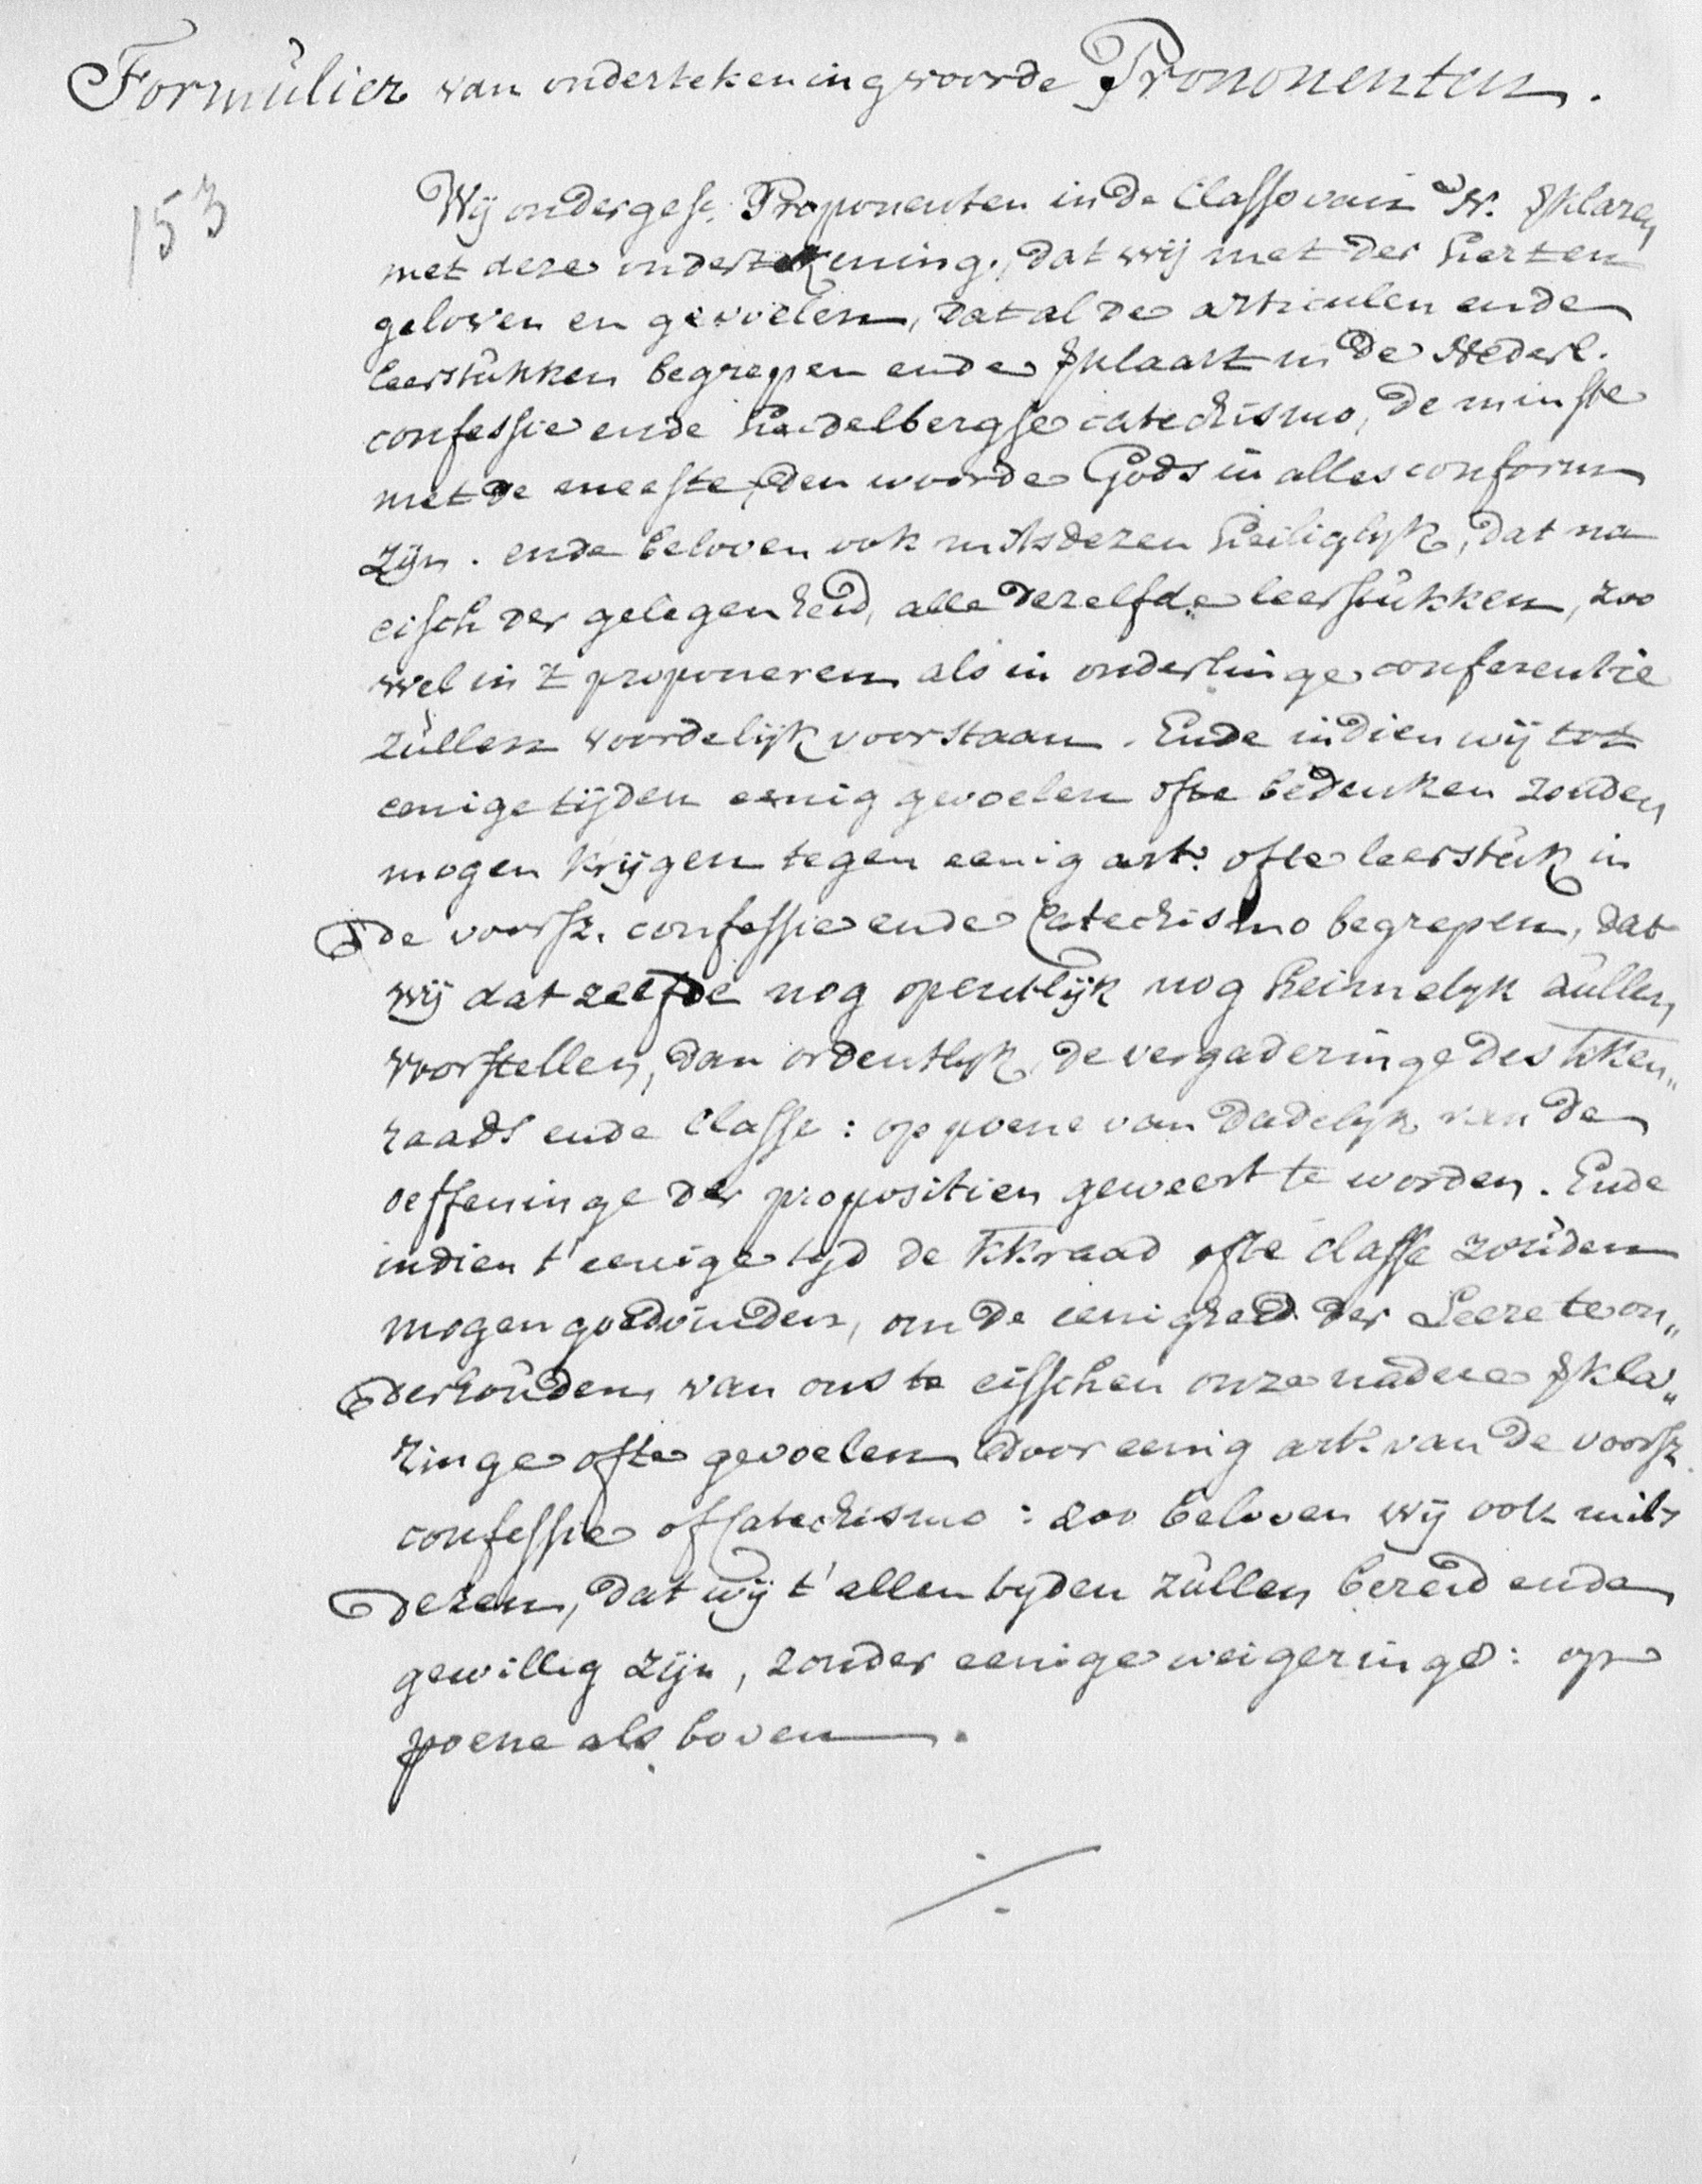 Formulier van ondertekening voor de Prononenten.
153
Wij ondergesc. Proponenten in de Classe van W. Vklaren
met deze ondertekening, dat wij met der herten
geloven en gevoelen, dat al de articulen ende
leerstukken begrepen ende Vklaart in de Nederl.
confessie ende Heidelbergse catechismo, de minste
met de meeste, den woorde Gods in alles conform
zijn. ende beloven ook mits dezen heiliglijk, dat na
eisch der gelegenheid, alle dezelfde leerstukken, zoo
wel in 't proponeren als in onderlinge conferentie
zullen voordelijk voorstaan. Ende indien wij tot
eenige tijden eenig gevoelen ofte bedenken zouden
mogen krijgen tegen eenig art. ofte leerstuk in
de voorsz. confessie ende Catechismo begrepen, dat
wij dat zelfde nog opentlijk nog heimelyk zullen
voorstellen, dan ordentlyk de vergaderinge des kken„
raads ende Classe: op poene van dadelyk van de
oeffeninge der propositien geweert te worden. Ende
indien t'eenige tyd de kkraad ofte classe zouden
mogen goedvinden, om de eenigheid der Leere te on„
derhouden, van ons te eisschen onze nadere Vkla„
ringe ofte gevoelen voor eenig art. van de voorsz.
confessie of Catechismo: zoo beloven wij ook mits
dezen, dat wij t'allen tyden zullen bereid ende
gewillig zijn, zonder eenige weigeringe: op
poene als boven.